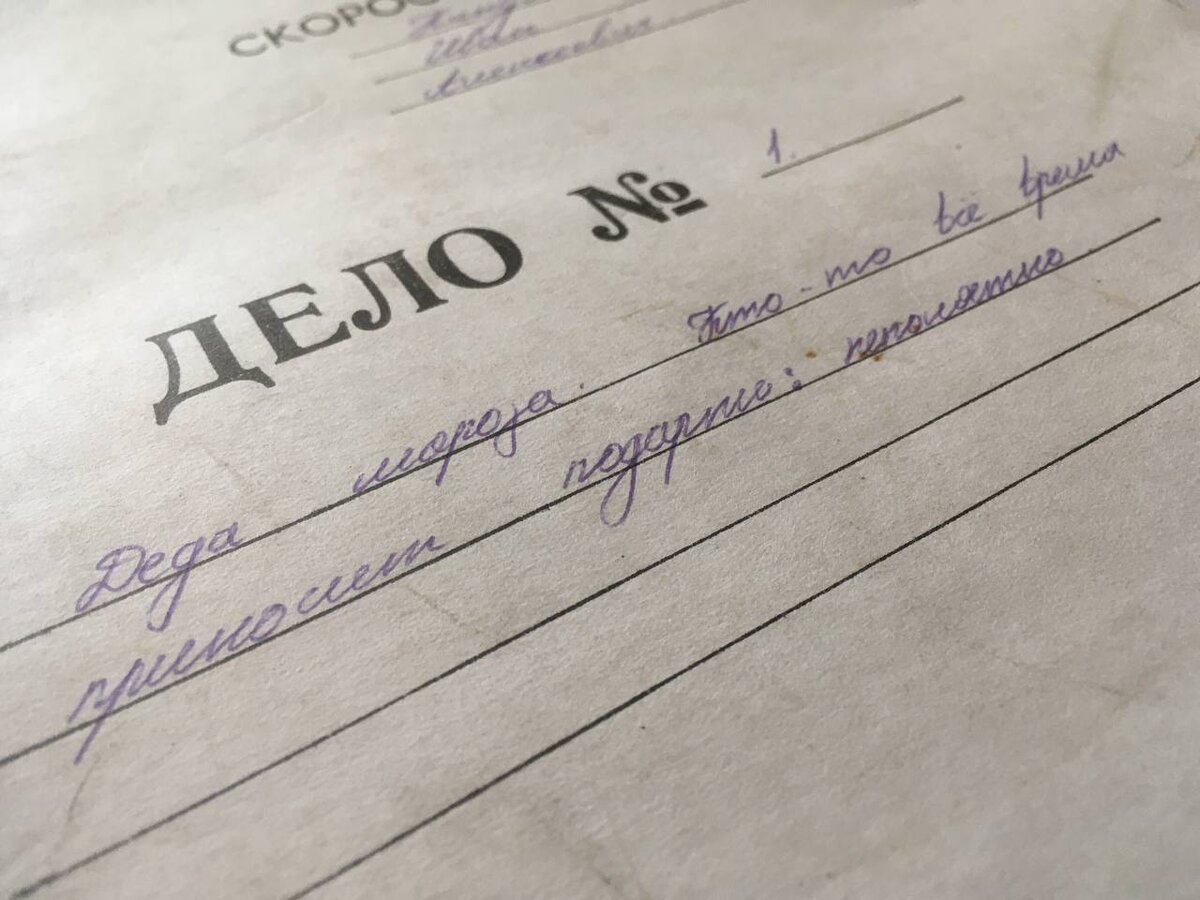 СКОРОС
Иван
Алексеевич
ДЕЛО № 1.
Деда мороза. Кто-то всё время
приносит подарки: непонятно